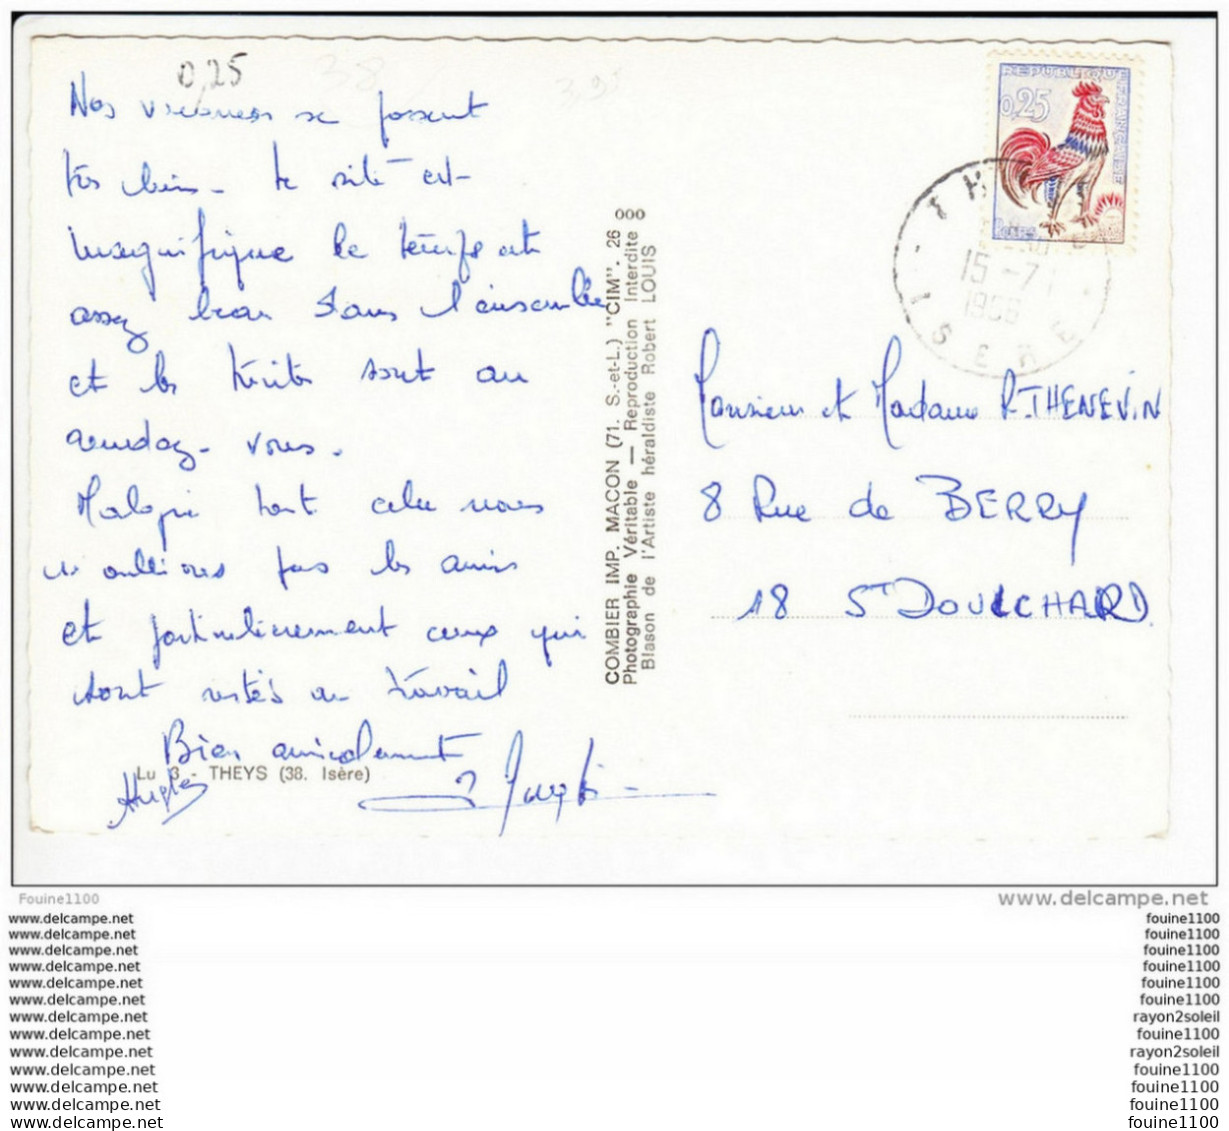 0,25
38
Nos vacances se passent
très bien - Le site est
magnifique le temps est
assez beau dans l'ensemble
et les truites sont au
rendez-vous.
Malgré tout cela nous
n'oublions pas les amis
et particulièrement ceux qui
sont restés au travail
Bien amicalement
Lu 3 - THEYS (38. Isère)
COMBIER IMP. MACON (71. S.-et-L.) "CIM". 26 000
Photographie Véritable — Reproduction Interdite
Blason de l'Artiste héraldiste Robert LOUIS
REPUBLIQUE FRANÇAISE
0,25
15-7
1966
ISERE
Monsieur et Madame R. THENEVIN
8 Rue de BERRY
18 St DOULCHARD
Fouine1100
www.delcampe.net
www.delcampe.net
www.delcampe.net
www.delcampe.net
www.delcampe.net
www.delcampe.net
www.delcampe.net
www.delcampe.net
www.delcampe.net
www.delcampe.net
www.delcampe.net
www.delcampe.net
www.delcampe.net
www.delcampe.net
fouine1100
fouine1100
fouine1100
fouine1100
fouine1100
fouine1100
rayon2soleil
fouine1100
rayon2soleil
fouine1100
fouine1100
fouine1100
fouine1100